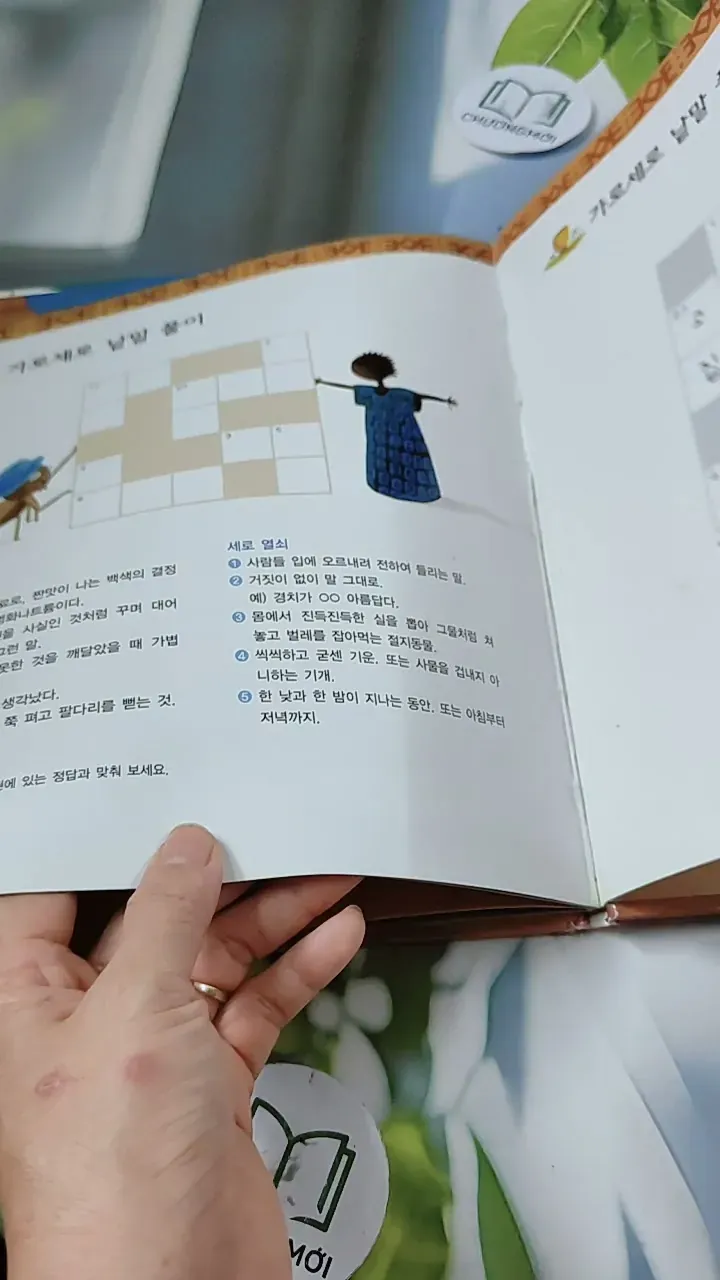 CHƯƠNGMỚI
가로세로 낱말
가로세로 낱말 풀이
료로, 짠맛이 나는 백색의 결정
염화나트륨이다.
을 사실인 것처럼 꾸며 대어
그런 말.
못한 것을 깨달았을 때 가볍
생각났다.
쭉 펴고 팔다리를 뻗는 것.
에 있는 정답과 맞춰 보세요.
세로 열쇠
① 사람들 입에 오르내려 전하여 들리는 말.
② 거짓이 없이 말 그대로.
예) 경치가 ○○ 아름답다.
③ 몸에서 진득진득한 실을 뽑아 그물처럼 쳐
놓고 벌레를 잡아먹는 절지동물.
④ 씩씩하고 굳센 기운. 또는 사물을 겁내지 아
니하는 기개.
⑤ 한 낮과 한 밤이 지나는 동안. 또는 아침부터
저녁까지.
MỚI